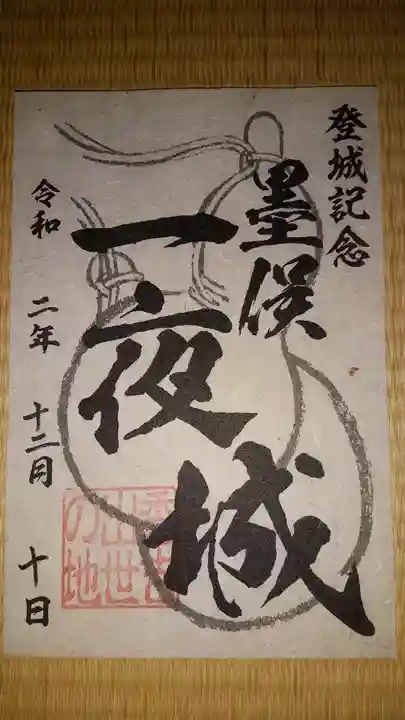 登城記念
墨俣
一夜城
秀吉
出世
の地
令和 二年 十二月 十日